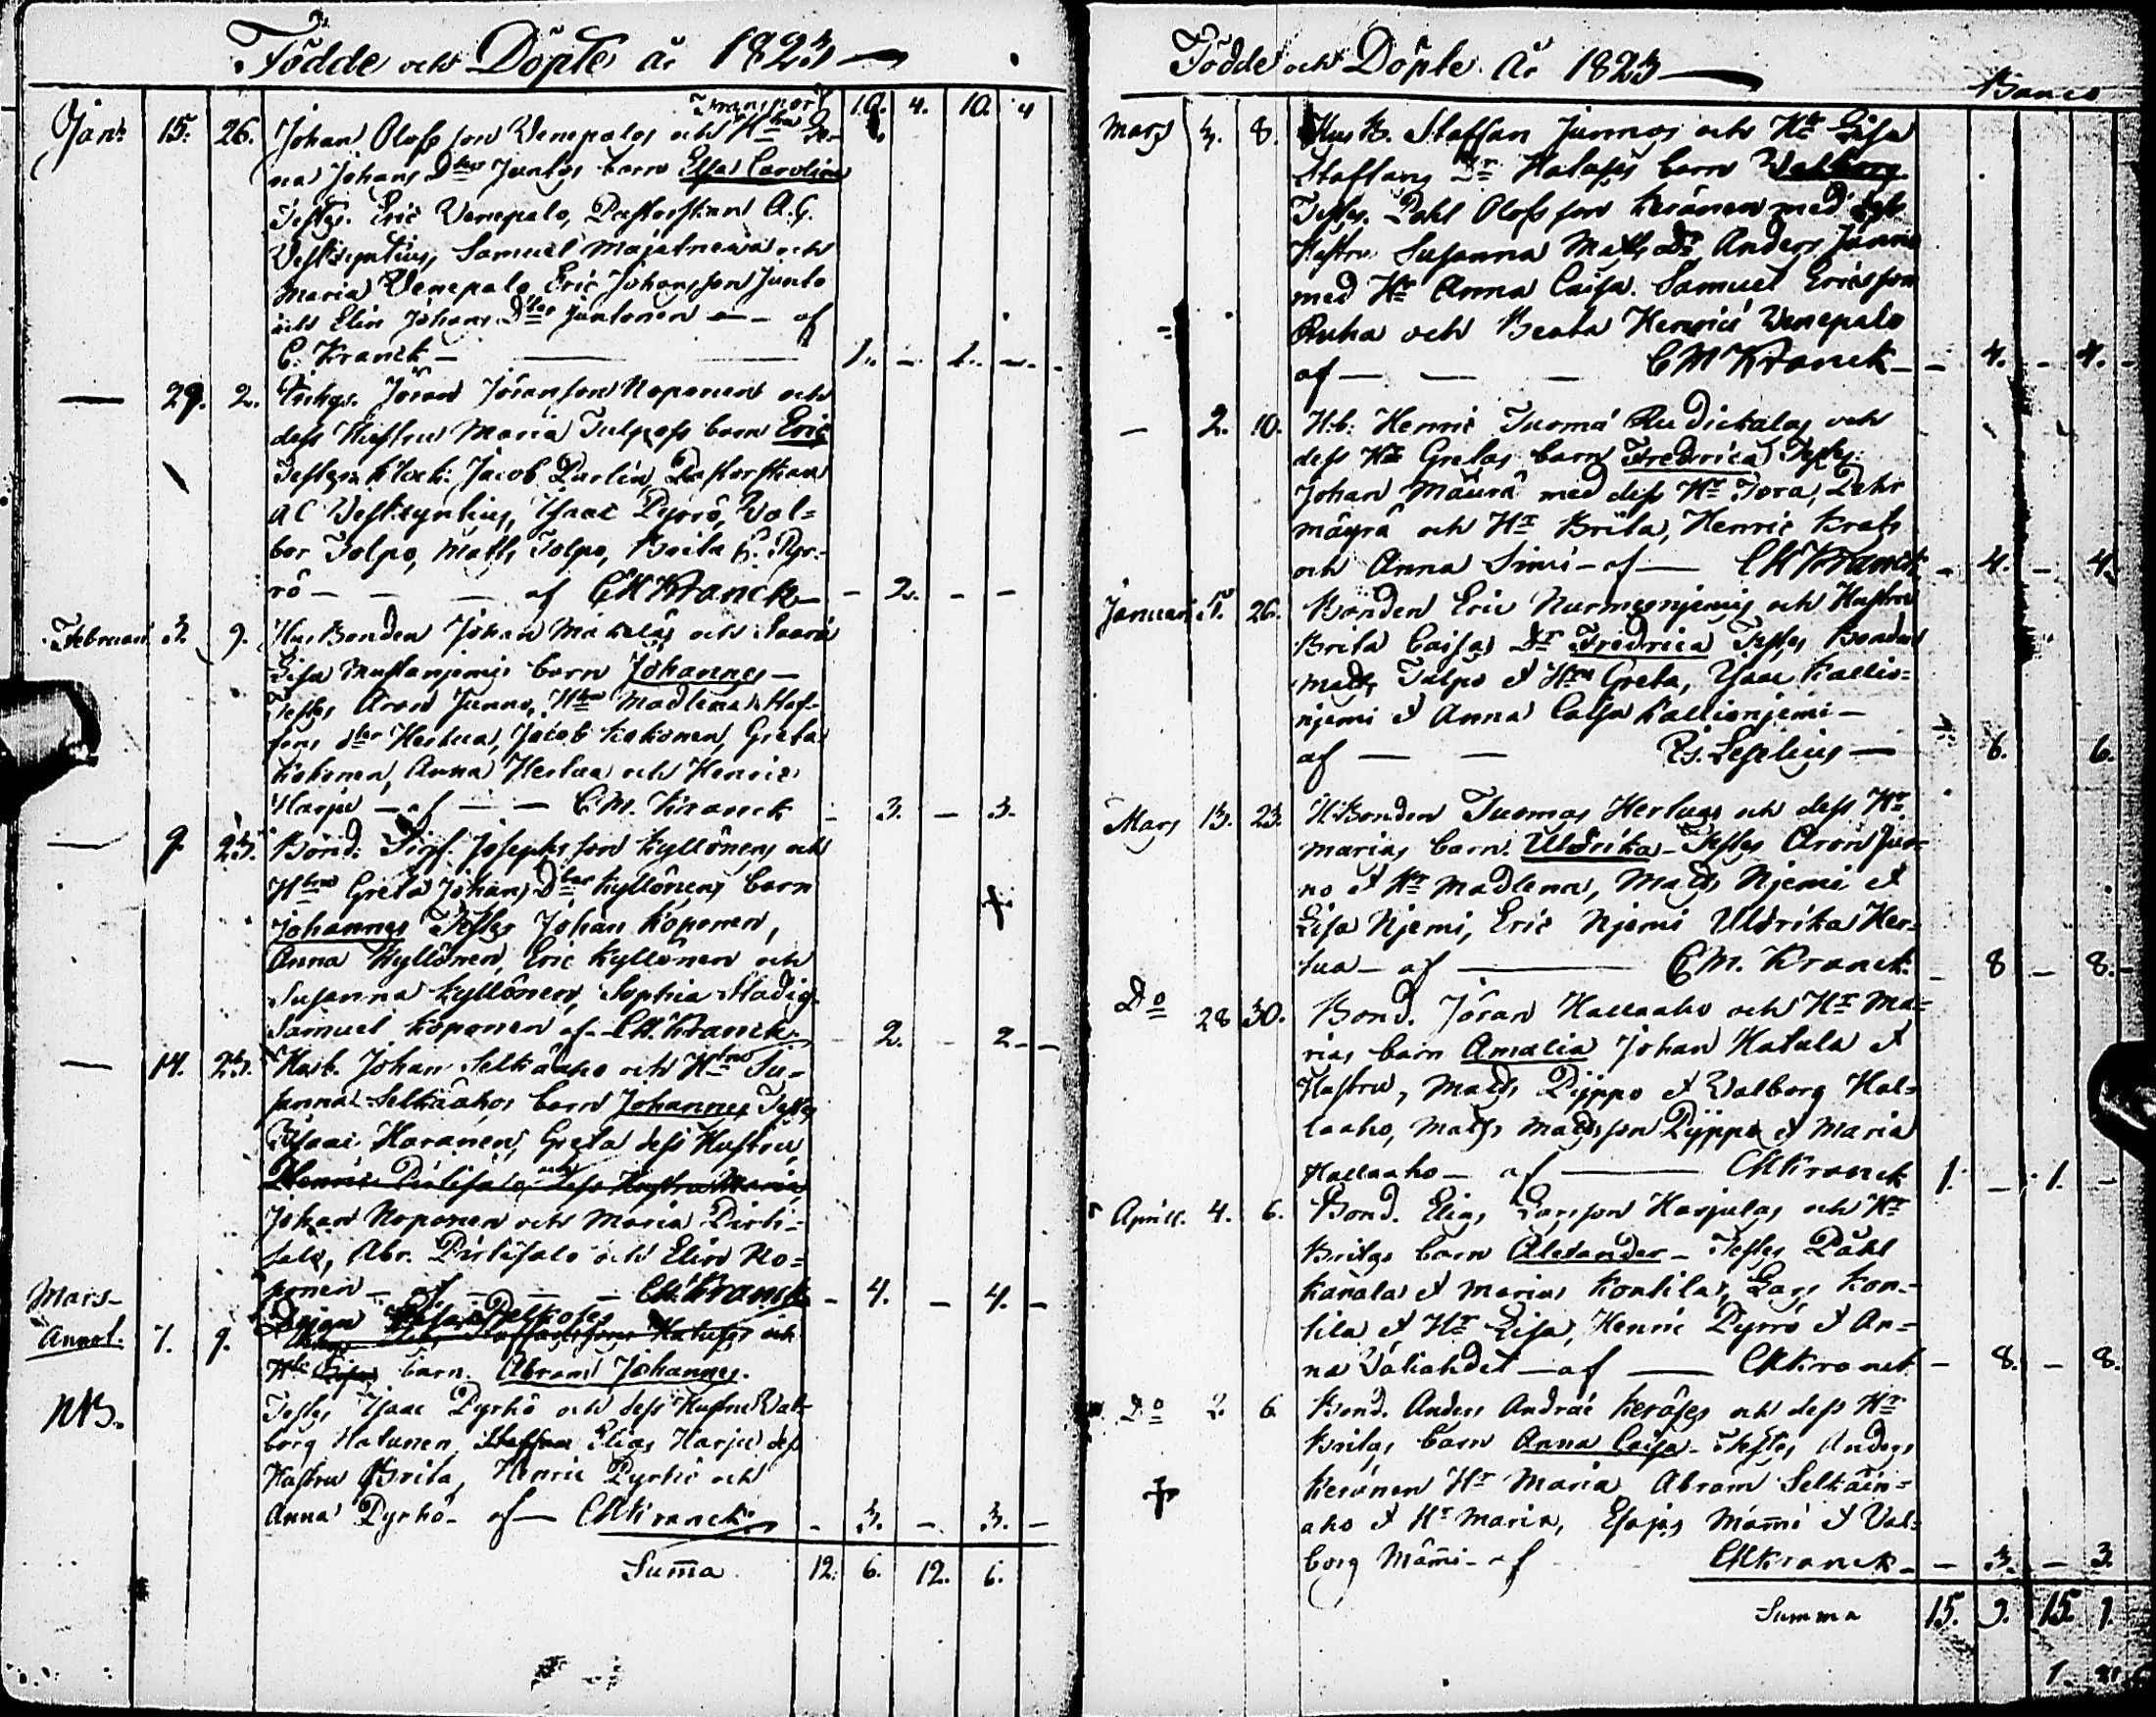 Födde och Döpte år 1823
Transport 10. 4. 10. 4
Jan: 15. 26. Johan Olofsson Venepalos och H:tru Le-
na Johans D:ter Juntos barn Elsa Carolina
Testes. Eric Venepalo, Pastorskan A.G.
Vestsyntius, Samuel Majalnewa och
Maria Venepalo, Eric Johansson Junto
och Elin Johans D:ter Juntonen — af
C. Kranck — 1. — 1. —
— 29. 2. Jöran Jöransson Noponens och
dess Hustru Maria Tulpos barn Eric
Testes Klock: Jacob Parlin, Pastorskan
A C Vestsyntius, Isaac Pyrrö, Val=
bor Tolpo, Matts Tolpo, Brita H. Pyr-
rö — — — af CM Kranck — 2. — —
Februari 3. 9. Husbonden Johan Makelas och
Lisa Mustanjemis barn Johannes —
Testes Aron Junno, H:tru Madlena Staf-
fans d:ter Hertua, Jacob Kokonen, Greta
Kokonen, Anna Hertua och Henric
Harju — af — — C M. Kranck — 3. — 3.
— 9. 23. Bond. Josephsson Kyllönens och
H:tru Greta Johans D:ter Kyllönens barn
Johannes Testes Johan Koponen,
Anna Kyllönen, Eric Kyllönen och
Susanna Kyllönen, Sophia Stadig
Samuel Koponen af CM. Kranck — 2. — 2 —
— 14. 23. Husb. Johan Selkäaho och H:tru Su=
sanna Selkäahos barn Johannes Testes
Isaac Haranen, Greta dess Hustru,
Henric Pirtisalo och dess Hustru Maria
Johan Noponen och Maria Pirti-
salo, Abr. Pirtisalo och Elin No=
ponen — af — — CM. Kranck — 4. — 4. —
Mars —
Pelkoses
Annot. 7. 9. Staffansson Hatuses och
H:tr Lisas barn. Abram Johannes.
NB. Testes Isaac Pyrhö och dess Hustru Val-
borg Hatunen, Staffan Elias Harju dess
Hustru Brita, Henric Pyrhö och
Anna Pyrhö — af — CM Kranck — 3. — 3. —
Summa 12. 6. 12. 6.
Födde och Döpte År 1823
Banco
Mars 3. 8. Hus B. Staffan Junnos och H:tr Lisa
Staffans D:r Halases barn Walborg
Testes. Pehl Olofsson Keränen med dess
Hustru Susanna Matts D:r Anders Junno
med H:r Anna Caisa. Samuel Ericsson
och Beata Henrici Venepalo
af — — — CM Kranck — 4. — 4. —
— 2. 10. H:b: Henric Tuoma och
dess H:tr Gretas barn Fredrica Testes
Johan Mäura med dess H:r Tora, Pehr
mäyrä och H:r Brita, Henric Krats
och Anna Simi — af — CM Kranck — 4. — 4.
Januari 5. 26. Bonden Eric Nurmesnjemis och Hustru
Brita Caisas D:r Fredrica Testes Bonden
Matts Tulpo et H:tru Greta, Isaac Kallio=
njemi et Anna Caisa Kallionjemi —
af — — 6. 6.
Mars 13. 23. H.Bonden Tuomas Hertuas och dess H:r
Marias barn. Uldrika — Testes Aron Jun-
no et H:r Madlena, Matts Njemi et
Lisa Njemi, Eric Njemi Uldrika Her-
tua — af — CM. Kranck. — 8 — 8. —
D:o 28 30. Bond. Jöran Hallaaho och H:r Ma=
rias barn Amalia Johan Hatula et
Hustru, Matts Pijppo et Walborg Hal=
laaho, Matts Mattsson Pijppo et Maria
Hallaaho — af — CM Kranck 1. — 1. —
Aprill. 4. 6. Bond. Elias Larsson Harjulas och H:r
Britas barn Alexander — Testes Påhl
Karala et Marias Kontila, Lars Kon=
tila et H:r Lisa, Henric Pyrrö et An=
na Väliahdet — af — CM Kranck — 8. — 8.
D:o 2. 6. Bond. Anders Andraé Keräses och dess H:r
Britas barn Anna Caisa — Testes Anders
Keränen H:r Maria Abram Selkäin=
aho et H:r Maria, Esajas Mämi et Val=
borg Mämi — af CM Kranck — 3. — 3.
Summa 15. 9. 15. 9.